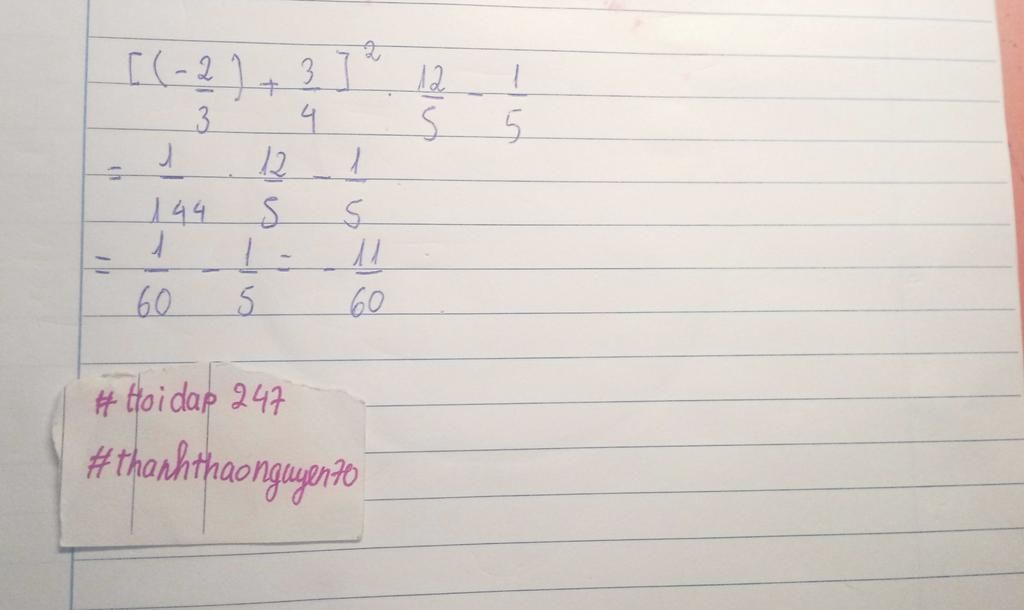 [(-2/3) + 3/4]² . 12/5 - 1/5
= 1/144 . 12/5 - 1/5
= 1/60 - 1/5 = - 11/60
# Hoidap 247
#thanhthaonguyen70